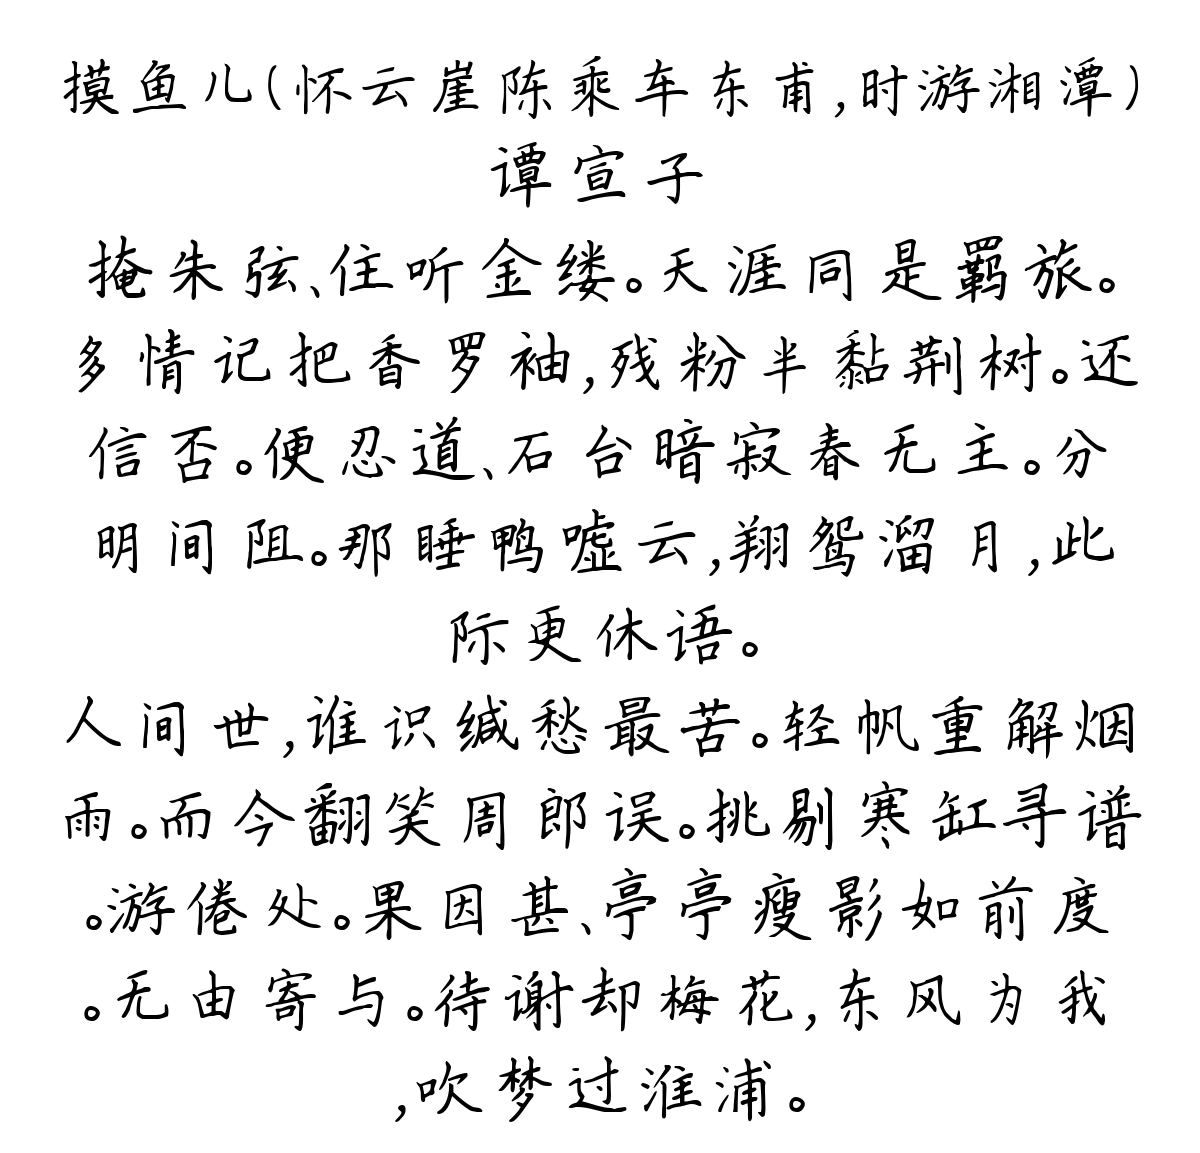 摸鱼儿(怀云崖陈乘车东甫,时游湘潭)
谭宣子
掩朱弦、住听金缕。天涯同是羁旅。
多情记把香罗袖,残粉半黏荆树。还
信否。便忍道、石台暗寂春无主。分
明间阻。那睡鸭嘘云,翔鸳溜月,此
际更休语。
人间世,谁识缄愁最苦。轻帆重解烟
雨。而今翻笑周郎误。挑剔寒缸寻谱
。游倦处。果因甚、亭亭瘦影如前度
。无由寄与。待谢却梅花,东风为我
,吹梦过淮浦。